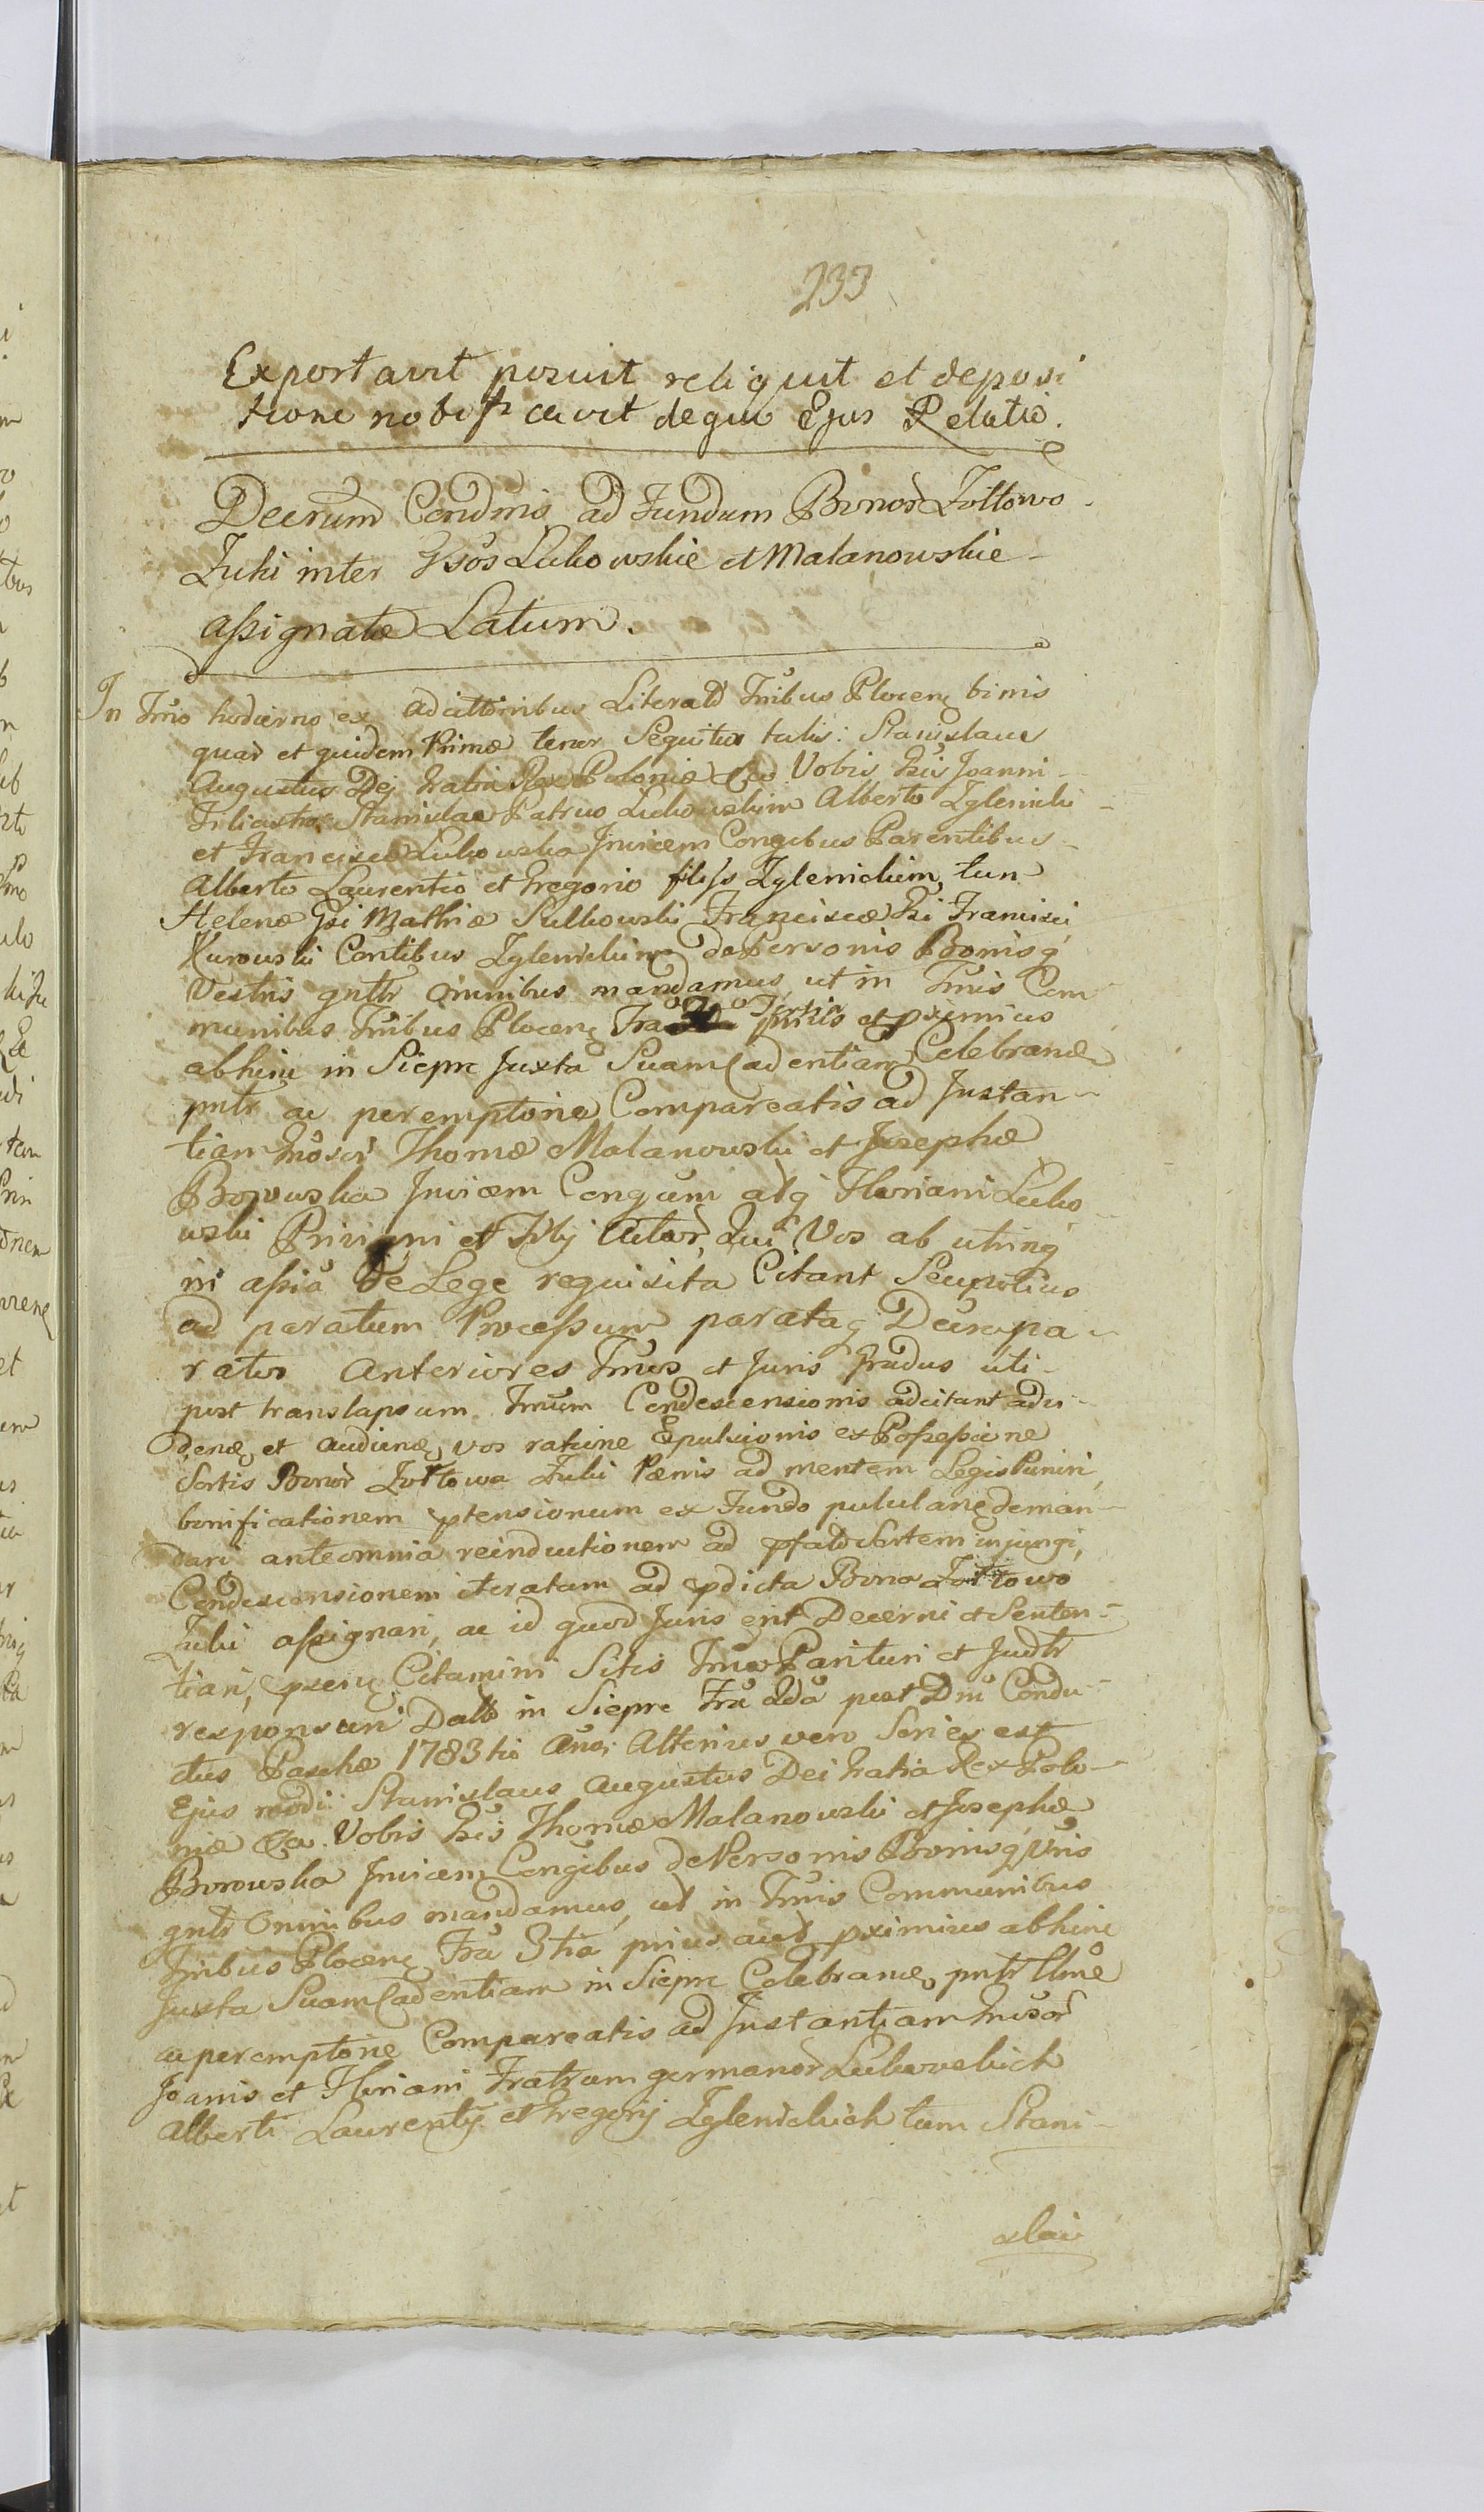 233
Exportavit posuit reliquit et deposi
tione notificavit dequo Ejus Relatio.
Decrum Condnis ad Fundum Bonor Zoltowo
Zuki inter Gsos Lukowskie et Malanowskie
assignatæ Latum.
In Tmio hodierno ex adcittonibus Literald Tribus Plocen binis
quar et quidem Primæ tenor Sequitur talis: Stanislaus
Augustus Dej Gratia Rex Poloniæ &ca Vobis Gsis Joanni
Stanislao Patruo Lukowskim Alberto Zglenicki
et Francisca Lukowska Invicem Congibus Parentibus
Alberto Laurentio et Gregorio filijs Zglenickim, tum
Helenæ Gsi Mathiæ Sulkowski Franciscæ Gsi Francisci
Kurowski Contibus Zglenickim de Personis Bonisq
Vestris gnttr Omnibus mandamus, ut in Tmis Com
munibus Tribus Plocen Tertia prius et pximius
abhinc in Siepre Juxta Suam Cadentiam Celebrand
pntr ac peremptorie Compareatis ad Instan
tiam Thomæ Malanowski et Josephæ
Borowska Invicem Congum atq Floriani Luko
wski et Filij Actor, Qui Vos ab utrinq
in assia de Lege requisita Citant
ad paratum Processum parataq
ratos anteriores Tmos et Juris Gradus uti
post translapsum Tmum Condescensionis adcitant advi
dend, et audiend, vos ratione Expulsionis ex Possessione
Sortis Bonor Zoltowa Zuki Pænis ad mentem Legis Puniri,
bonificationem ptensionum ex Fundo pululan deman
dari anteomnia reinductionem ad pfatd Sortem injungi,
Condescensionem iteratam ad pdicta Bona Zoltowo
Zuki assignari, ac id quod Juris erit Decerni et Senten
tiari, Citamini Sitis Tmo Parituri et Judtr
responsuri Datt in Siepre Fra 2da post Dni Condu
ctus Paschæ 1783tio Ano. Alterius vero Series est
Ejus modi: Stanislaus Augustus Dei Gratia Rex Polo
niæ &ca. Vobis Gsis Thomæ Malanowski et Josephæ
Borowska Invicem Congibus de Personis Bonisq Vris
gntr Omnibus mandamus, ut in Tmis Communibus
Tribus Plocen Fra 3tia prius aut pximius abhinc
Juxta Suam Cadentiam in Siepre Celebrand, pntr
ac peremptorie Compareatis ad Instantiam
Joanis et Floriani Fratrum germanor Lukowskich
Alberti Laurentij et Gregorij Zglenickich tum Stani
slai